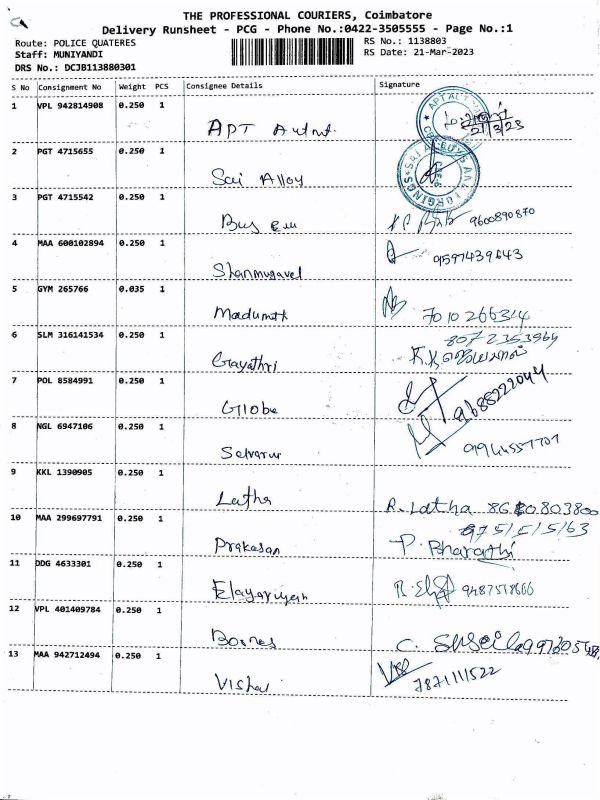 THE PROFESSIONAL COURIERS, Coimbatore
Delivery Runsheet - PCG - Phone No.:0422-3505555 - Page No.:1
Route: POLICE QUATERES
RS No.: 1138803
Staff: MUNIYANDI
RS Date: 21-Mar-2023
DRS No.: DCJB113880301
S No Consignment No Weight PCS Consignee Details Signature
1 VPL 942814908 0.250 1
APT Autmt. 21/3/23
2 PGT 4715655 0.250 1
Sai Alloy
3 PGT 4715542 0.250 1
Bus 9600890870
4 MAA 600102894 0.250 1
Shanmugavel 9597439643
5 GYM 265766 0.035 1
Madumith 7010266314
6 SLM 316141534 0.250 1 8072353964
Gayathri
7 POL 8584991 0.250 1
Globe 9688222044
8 NGL 6947106 0.250 1
Selvarur
9 KKL 1390905 0.250 1
Latha R. Latha
10 MAA 299697791 0.250 1 9751515163
Prakasan P. Bharathi
11 DDG 4633301 0.250 1
9487518666
12 VPL 401409784 0.250 1
Bornes C.
13 MAA 942712494 0.250 1
Vishal 7871111522